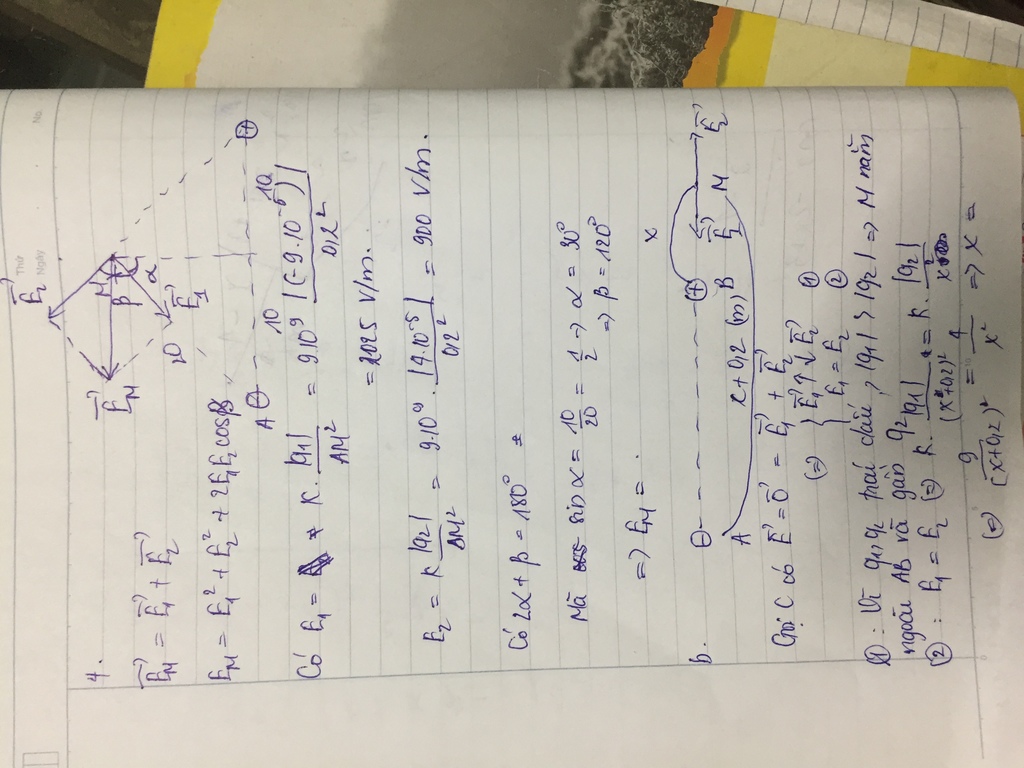 Thứ
Ngày
No.
4.
E₂
E_M
M
β
α
20
E₁
A ⊖
10
10
⊕
E_M = E₁ + E₂
E_M = E₁² + E₂² + 2E₁E₂cosβ
Có E₁ = K. |q₁| / AM² = 9.10⁹ |(-9.10⁻⁶)| / 0,2²
= 2025 V/m.
E₂ = K |q₂| / BM² = 9.10⁹ . |4.10⁻⁵| / 0,2² = 900 V/m.
Có 2α + β = 180°
Mà sin α = 10/20 = 1/2 → α = 30°
=> β = 120°
=> E_M = .
x
b. ⊖ ⊕
A B E₁ M E₂
x + 0,2 (m)
Gọi C có E = 0 = E₁ + E₂
(=) { E₁ ↑↓ E₂ ①
E₁ = E₂ ②
①: Vì q₁, q₂ trái dấu, |q₁| > |q₂| => M nằm
ngoài AB và gần q₂
②: E₁ = E₂ (=) K. |q₁| / (x+0,2)² = K. |q₂| / x²
(=) 9 / (x+0,2)² = 4 / x² => x =